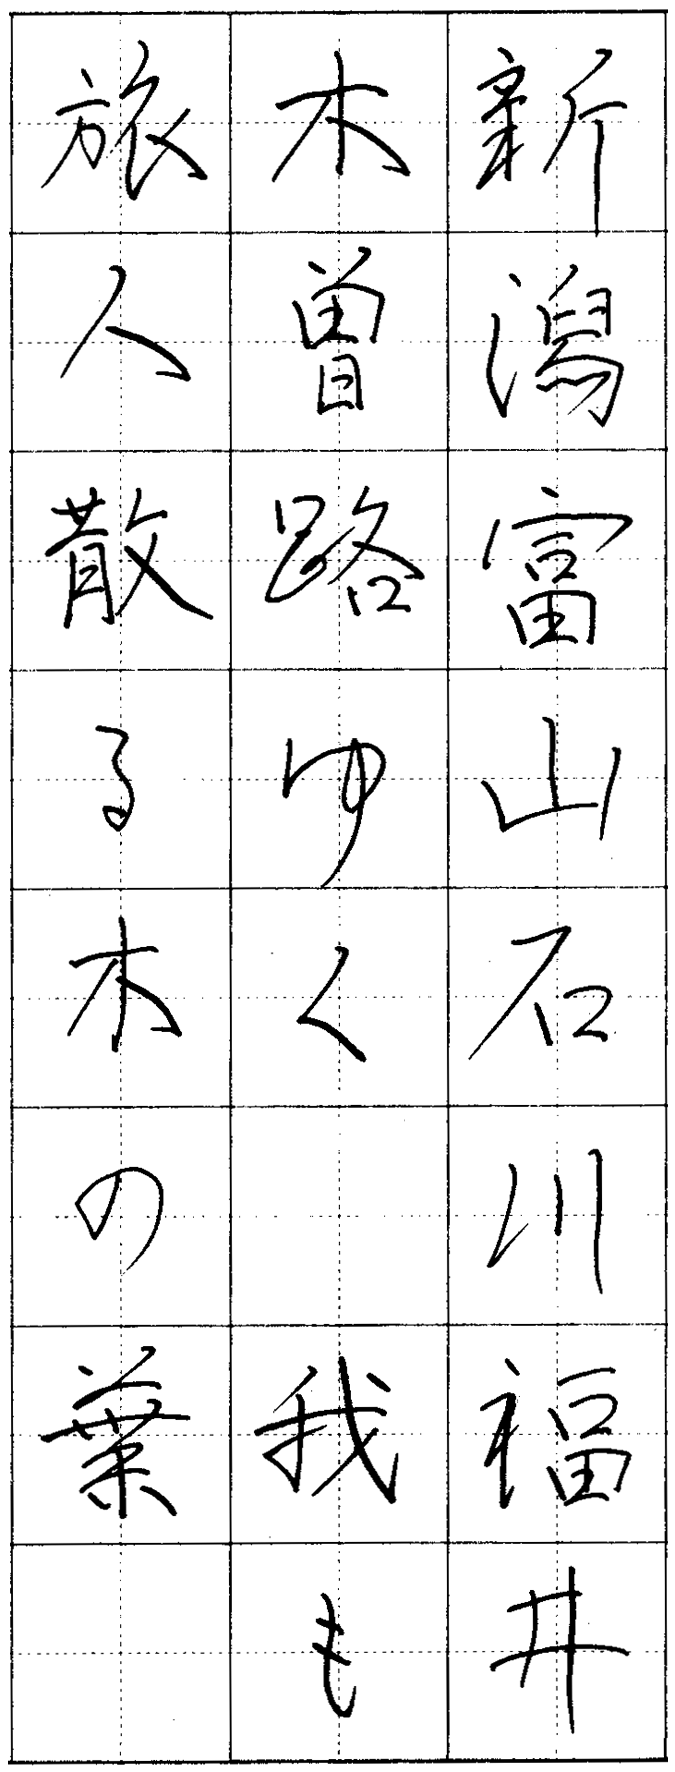 新潟富山石川福井
木曽路ゆく 我も
旅人散る木の葉